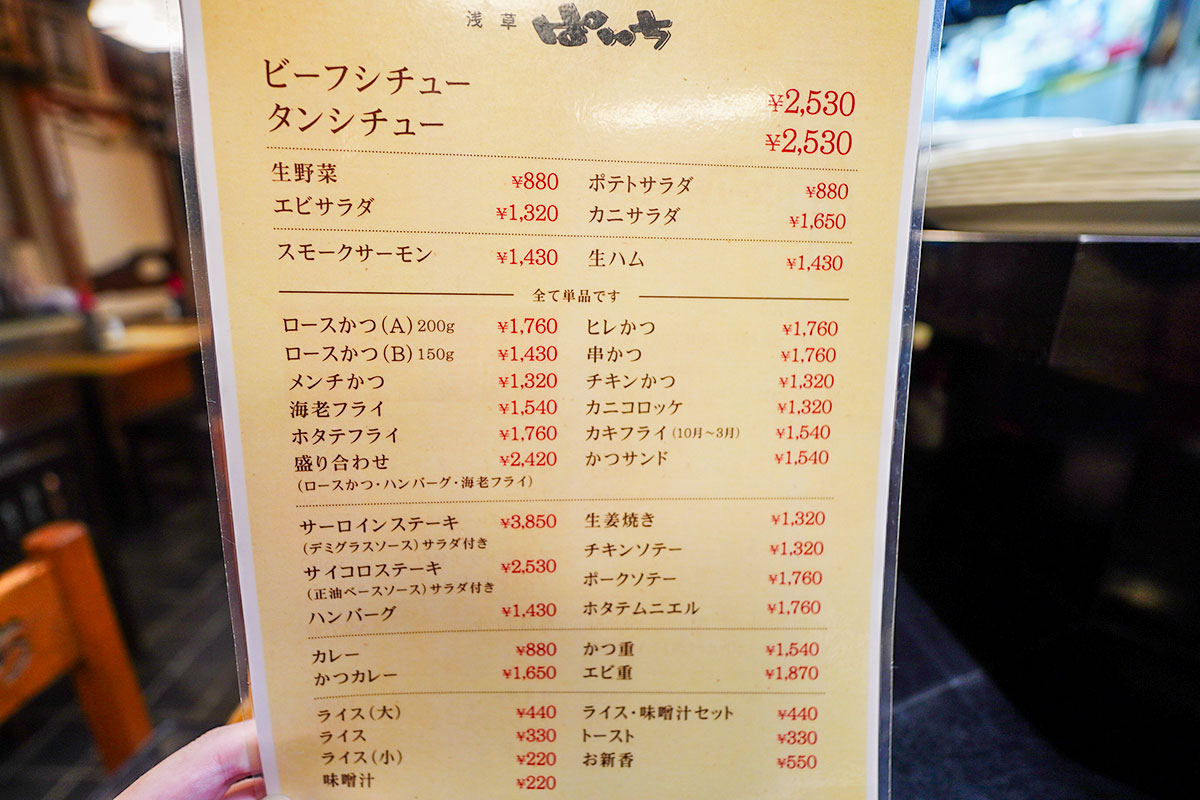 浅草 ぱいち
ビーフシチュー ¥2,530
タンシチュー ¥2,530
生野菜 ¥880 ポテトサラダ ¥880
エビサラダ ¥1,320 カニサラダ ¥1,650
スモークサーモン ¥1,430 生ハム ¥1,430
全て単品です
ロースかつ(A)200g ¥1,760 ヒレかつ ¥1,760
ロースかつ(B)150g ¥1,430 串かつ ¥1,760
メンチかつ ¥1,320 チキンかつ ¥1,320
海老フライ ¥1,540 カニコロッケ ¥1,320
ホタテフライ ¥1,760 カキフライ(10月～3月) ¥1,540
盛り合わせ ¥2,420 かつサンド ¥1,540
(ロースかつ・ハンバーグ・海老フライ)
サーロインステーキ ¥3,850 生姜焼き ¥1,320
(デミグラスソース)サラダ付き チキンソテー ¥1,320
サイコロステーキ ¥2,530 ポークソテー ¥1,760
(正油ベースソース)サラダ付き
ハンバーグ ¥1,430 ホタテムニエル ¥1,760
カレー ¥880 かつ重 ¥1,540
かつカレー ¥1,650 エビ重 ¥1,870
ライス(大) ¥440 ライス・味噌汁セット ¥440
ライス ¥330 トースト ¥330
ライス(小) ¥220 お新香 ¥550
味噌汁 ¥220